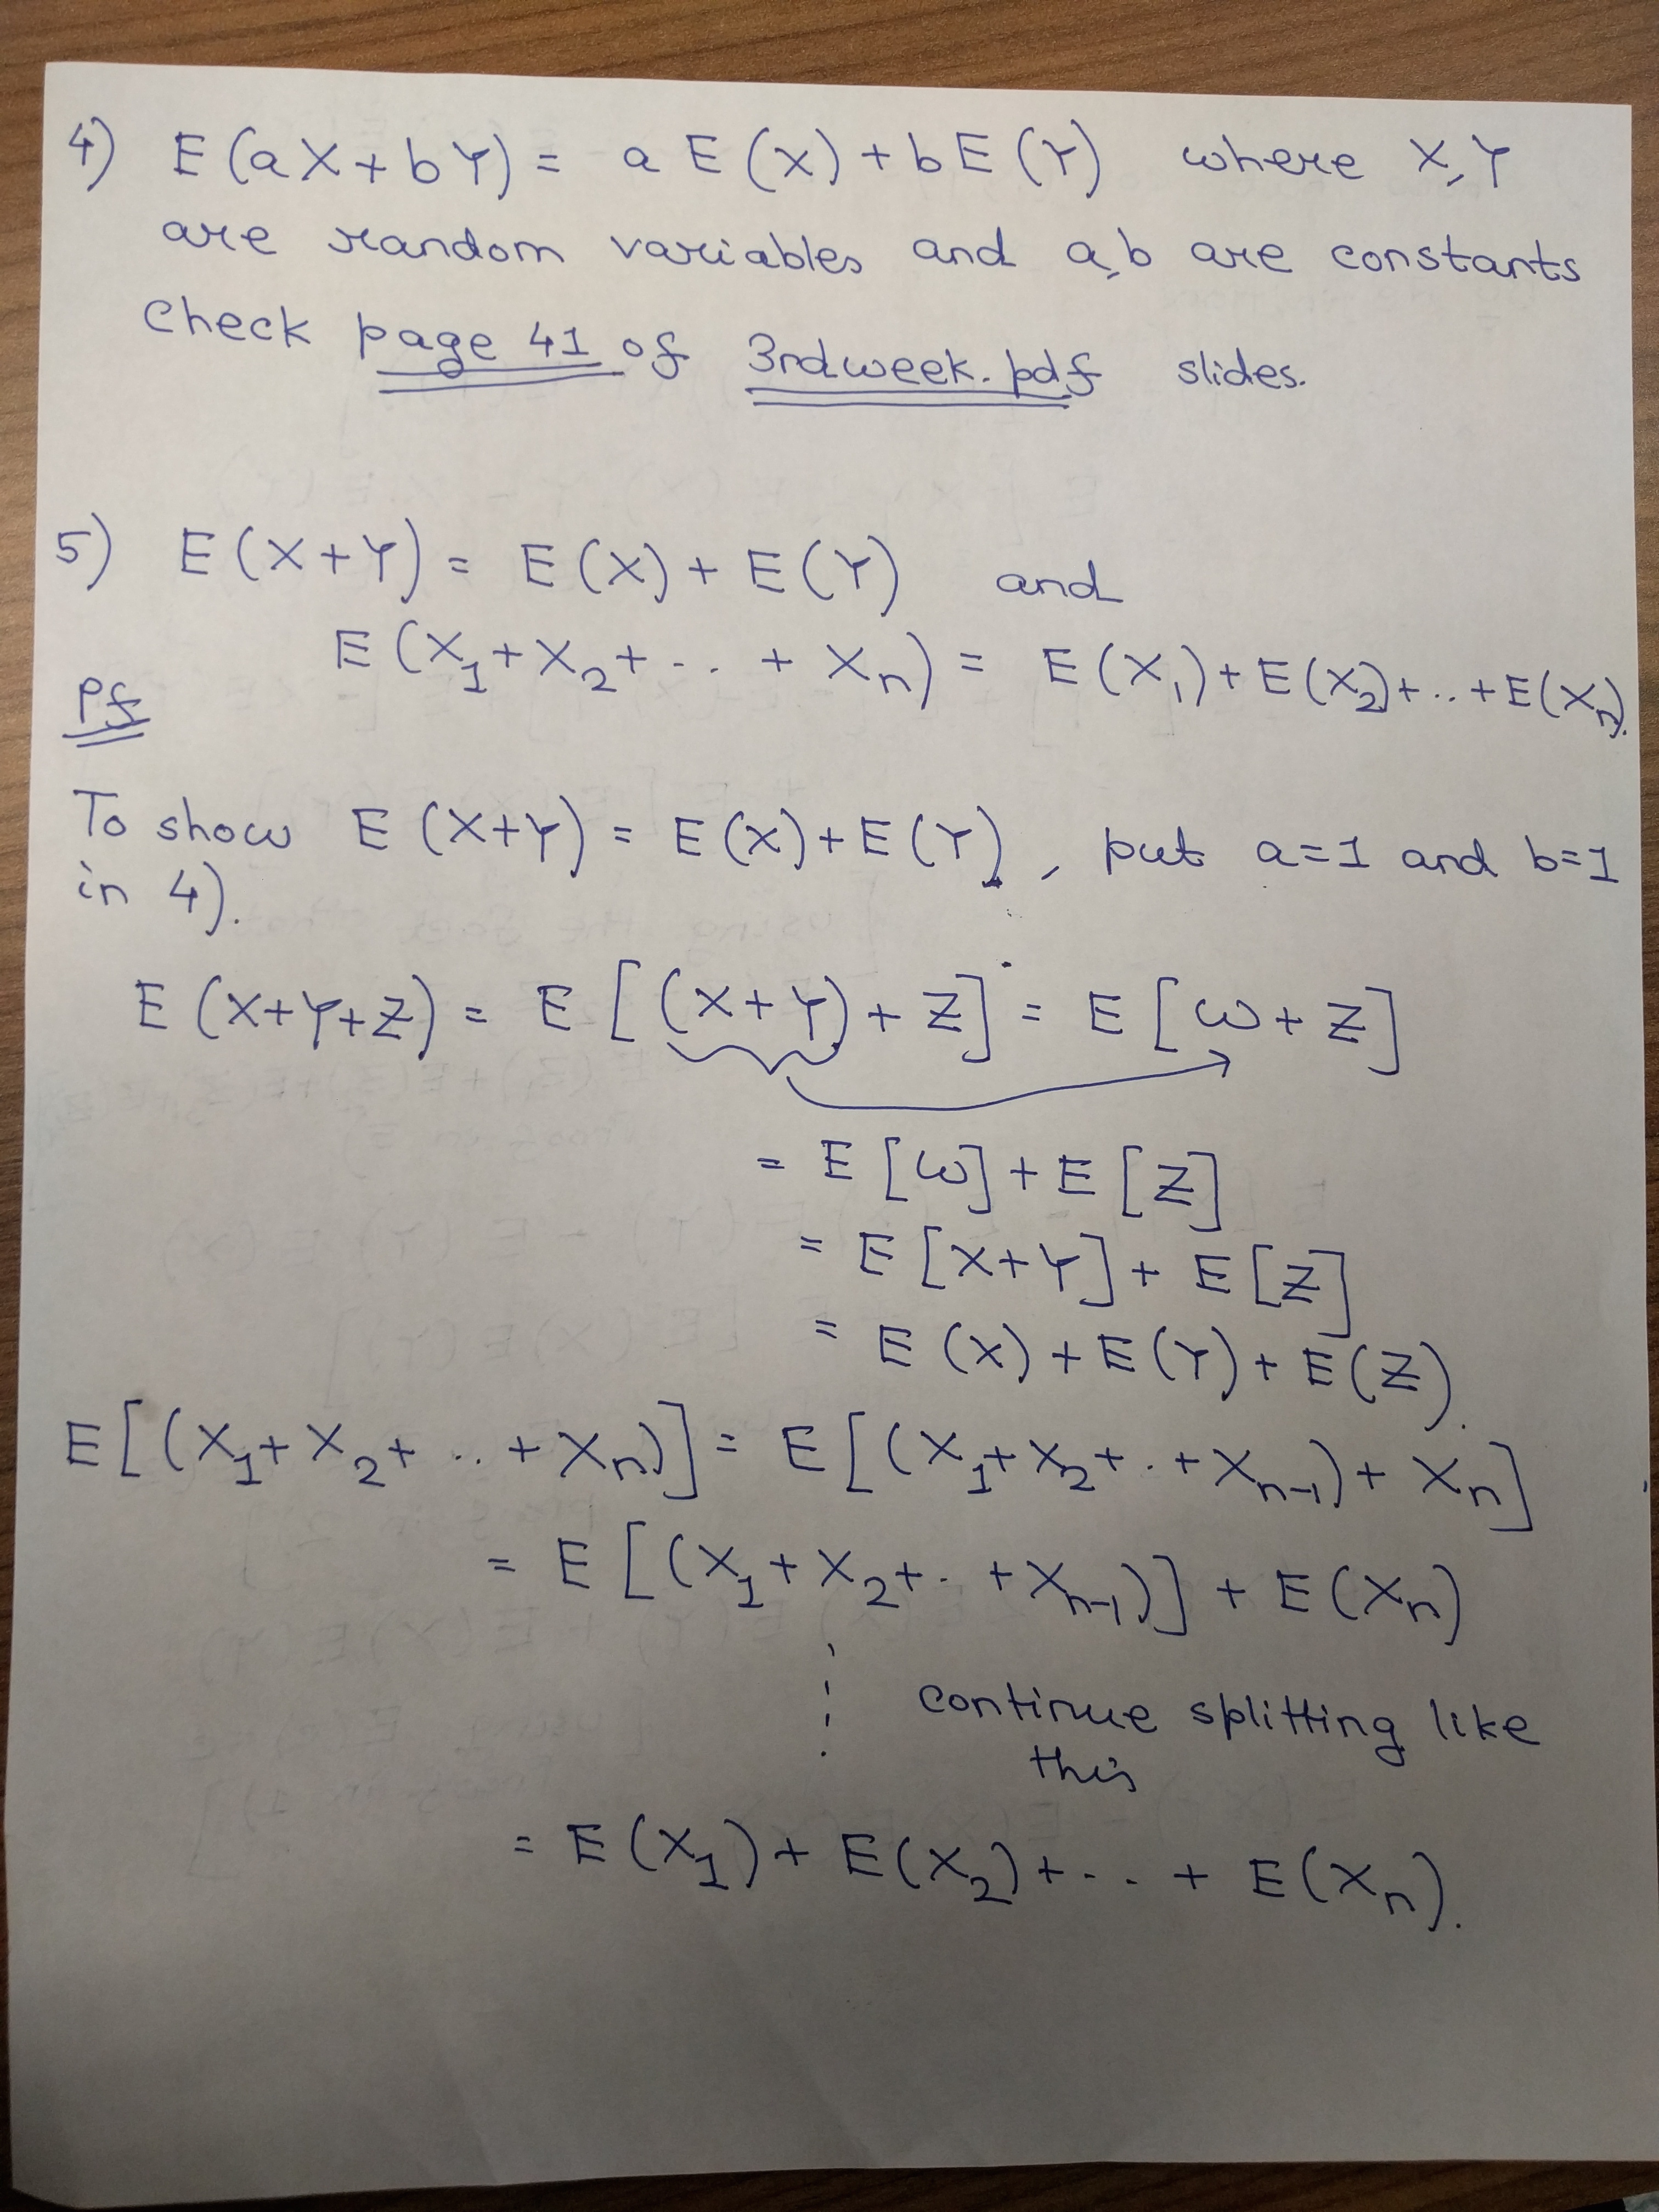 4) E(aX+bY) = a E(X)+bE(Y) where X,Y
are random variables and a,b are constants
Check page 41 of 3rdweek.pdf slides.
5) E(X+Y) = E(X)+E(Y) and
E(X₁+X₂+...+Xₙ) = E(X₁)+E(X₂)+..+E(Xₙ).
Pf
To show E(X+Y) = E(X)+E(Y), put a=1 and b=1
in 4).
E(X+Y+Z) = E[(X+Y)+Z] = E[ω+Z]
= E[ω]+E[Z]
= E[X+Y]+E[Z]
= E(X)+E(Y)+E(Z).
E[(X₁+X₂+..+Xₙ)] = E[(X₁+X₂+..+Xₙ₋₁)+Xₙ]
= E[(X₁+X₂+..+Xₙ₋₁)] + E(Xₙ)
⋮ continue splitting like
this
= E(X₁)+E(X₂)+...+E(Xₙ).